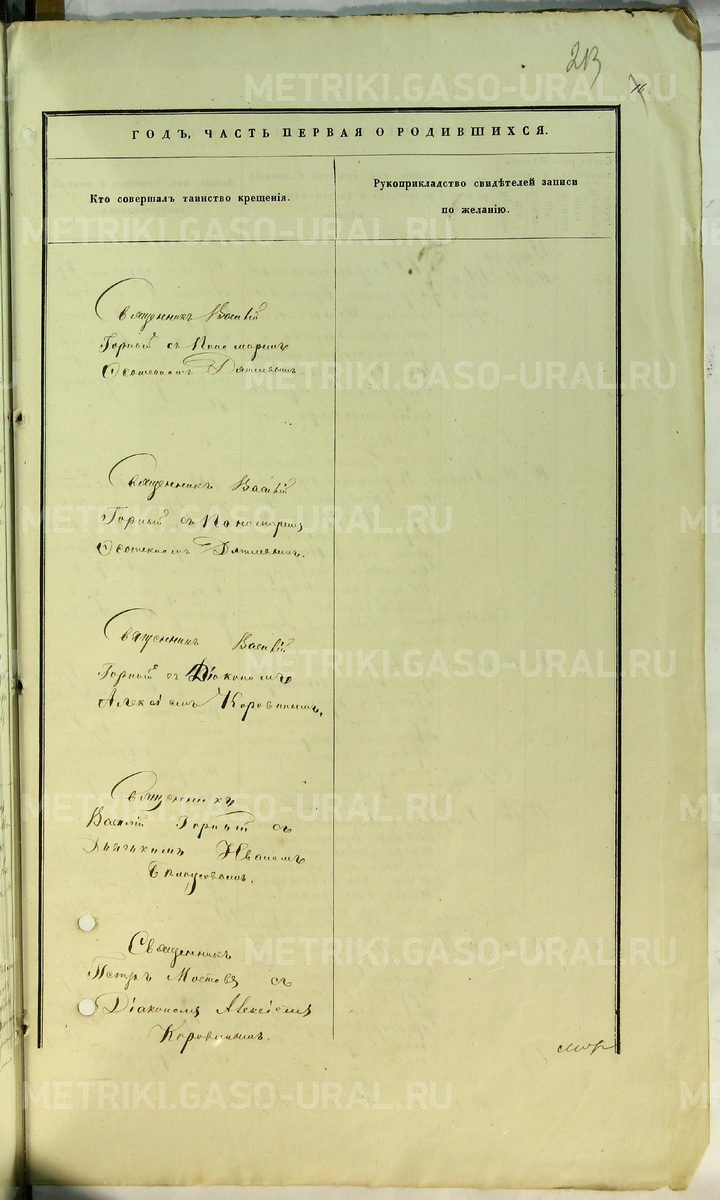 213
16
ГОДЪ, ЧАСТЬ ПЕРВАЯ О РОДИВШИХСЯ.
Кто совершалъ таинство крещенія.
Рукоприкладство свидѣтелей записи
по желанію.
Священникъ Василій
Горный съ Пономаремъ
Священникъ Василій
Горный съ Пономаремъ
Священникъ Василій
Горный съ Діакономъ
Алексіемъ Коровинымъ.
Священникъ
Василій Горный съ
Дьячкомъ Иваномъ
Священникъ
Петръ Мостовъ съ
Діакономъ Алексіемъ
Коровинымъ.
METRIKI.GASO-URAL.RU